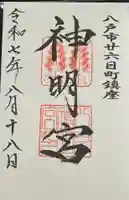 八戸市廿六日町鎮座
神明宮
令和七年八月十八日